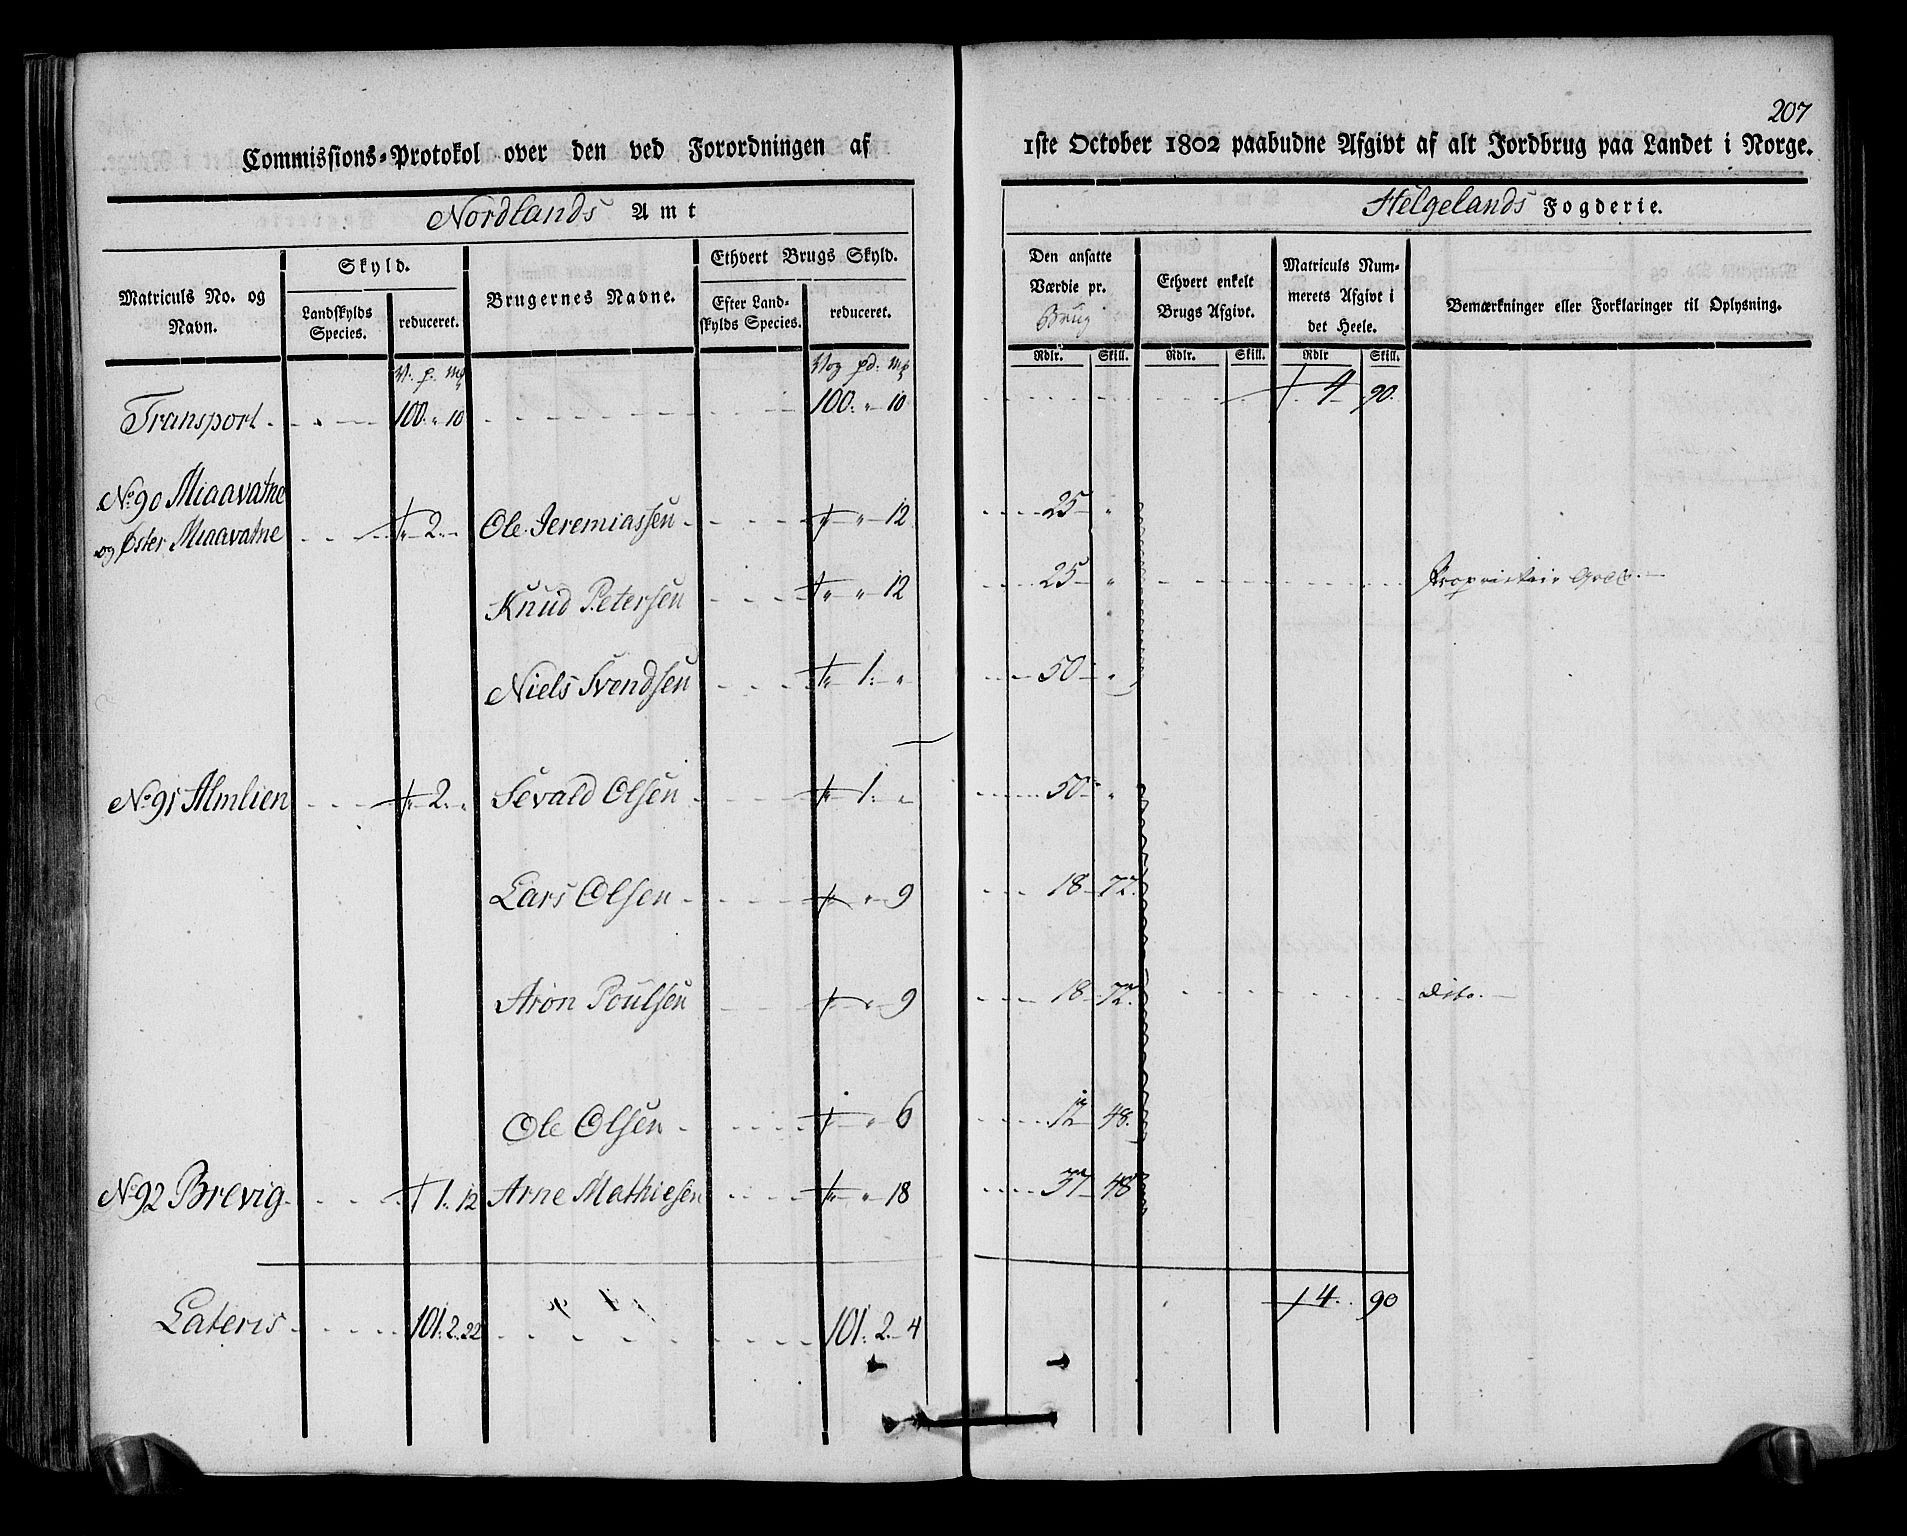 207
Commissions-Protokol over den ved Forordningen af 1ste October 1802 paabudne Afgivt af alt Jordbrug paa Landet i Norge.
Nordlands Amt
Helgelands Fogderie.
Matriculs No. og Navn.
Skyld.
Landskylds Species.
reduceret.
Brugernes Navne.
Ethvert Brugs Skyld.
Efter Land-
skylds Species.
reduceret.
Den ansatte
Værdie pr.
Brug
Ethvert enkelt
Brugs Afgivt.
Matriculs Num-
merets Afgivt i
det Heele.
Bemærkninger eller Forklaringer til Oplysning.
Rdlr. Skill. Rdlr. Skill. Rdlr Skill.
V. p. mk Vog pd: mk
Transport 100. " 10 100. " 10 4 90.
No 90 Miaavatne
og Øster Miaavatne " 2. Ole Jeremiassen " " 12 25 "
Knud Petersen " " 12 25 " Proprietair Gods.
Niels Svendsen " 1. " 50 "
No 91 Almlien " 2. " Sevald Olsen " 1. " 50 "
Lars Olsen " 9 18 72.
Aron Poulsen " 9 18 72. Dito.
Ole Olsen " 6 12 48.
No 92 Brevig 1. 12 Arne Mathiesen " " 18 37 48
Lateris 101. 2. 22 101. 2. 4 4. 90